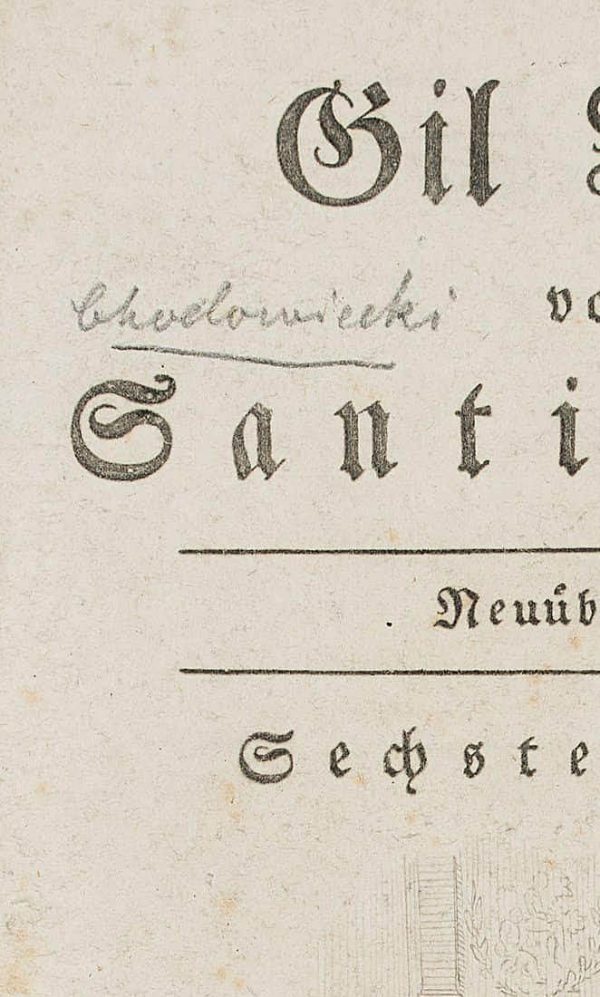 Gil
Chodowiecki
vo
Santi
Neuüb
Sechste